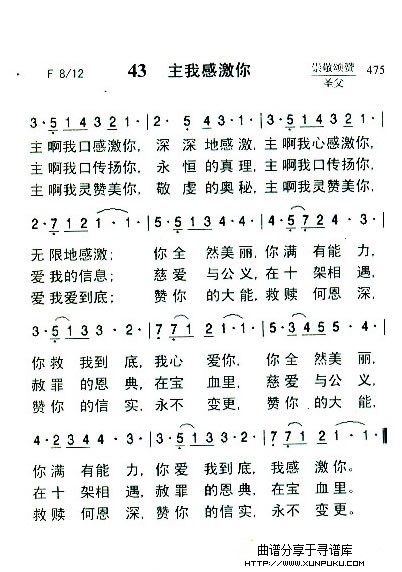 F 8/12 43 主我感激你 崇敬颂赞 475
圣父
3·51431·|2· 543·1·|3·51431·|
主啊我口感激你, 深深地感激, 主啊我心感激你,
主啊我口传扬你, 永恒的真理, 主啊我口传扬你,
主啊我灵赞美你, 敬虔的奥秘, 主啊我灵赞美你,
2·7121·1·|3·51342·|4·5724·2·|
无限地感激; 你全然美丽, 你满有能力,
爱我的信息; 慈爱与公义, 在十架相遇,
爱我爱到底; 赞你的大能, 救赎何恩深,
3·5132·2·|7712·1·|5·3454·3·|
你救我到底, 我心爱你, 你全然美丽
赦罪的恩典, 在宝血里, 慈爱与公义,
赞你的信实, 永不变更, 赞你的大能,
4·2344·|3·5133·2·|7721·1·‖
你满有能力, 你爱我到底, 我感激你。
在十架相遇, 赦罪的恩典, 在宝血里。
救赎何恩深, 赞你的信实, 永不变更。
曲谱分享于寻谱库
HTTP://WWW.XUNPUKU.COM